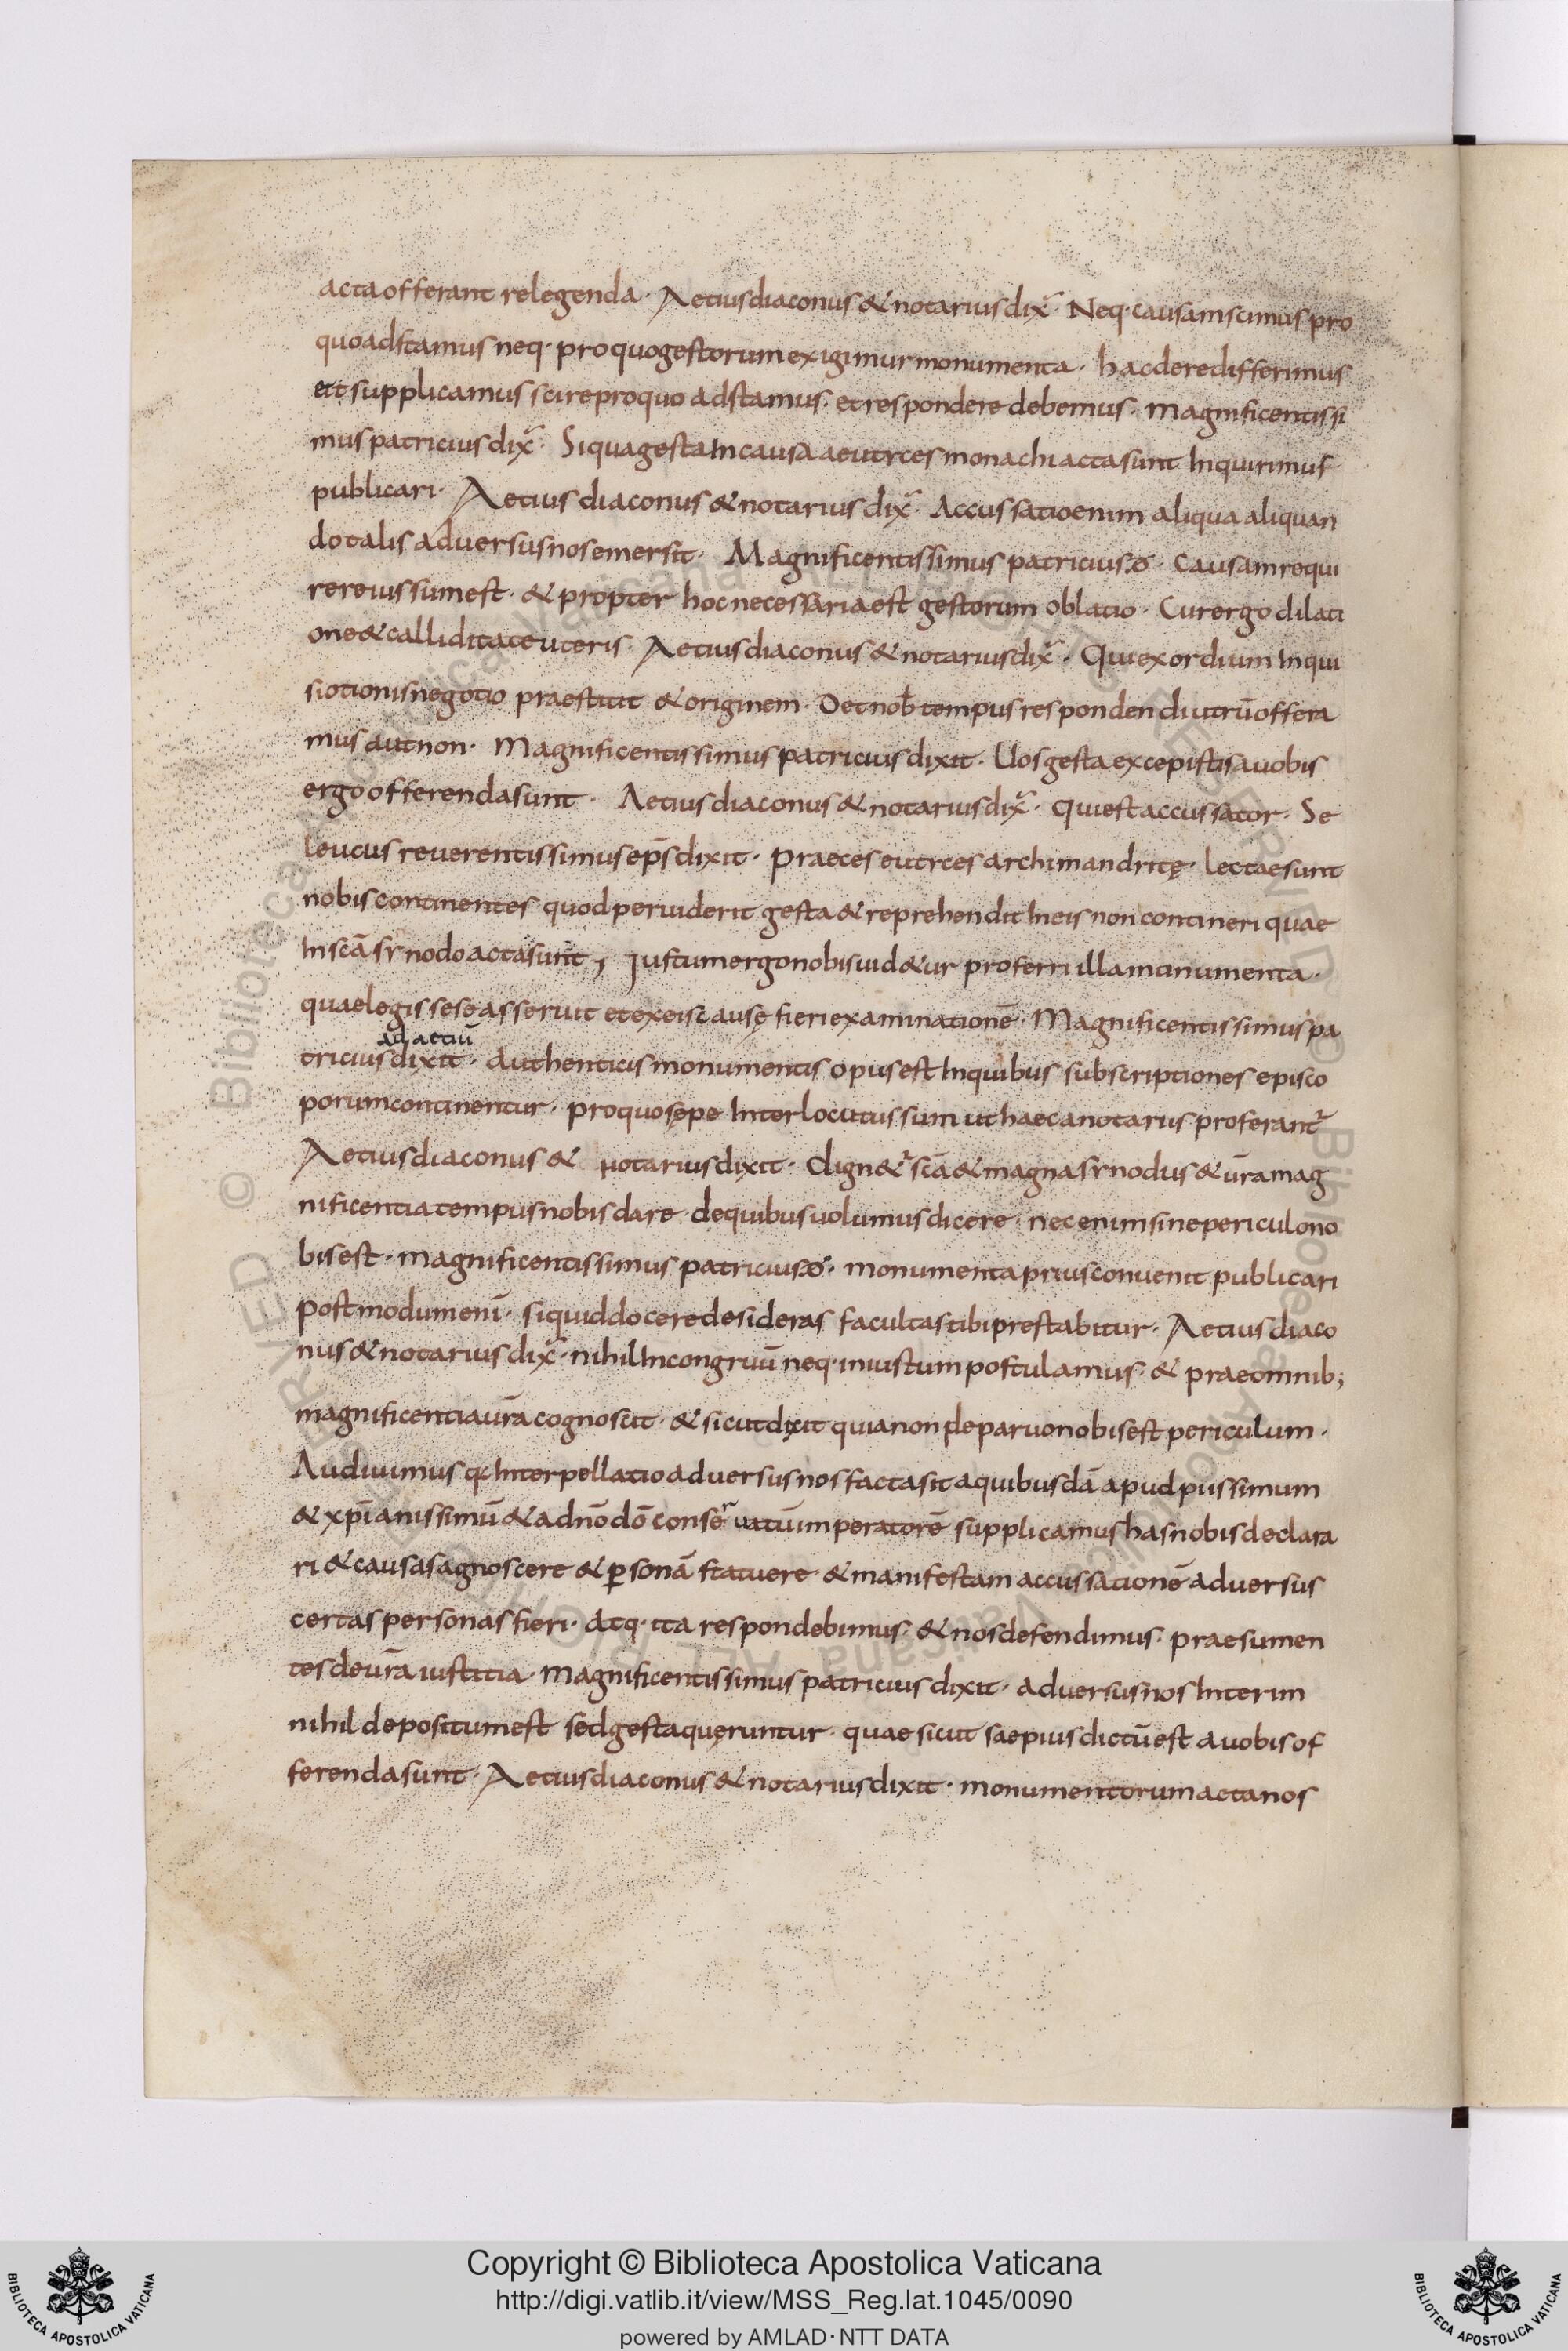 acta offerant relegenda · Aetius diaconus & notarius dix̄ · Neq· causam scimus pro
quo adstamus neq· pro quo gestorum exigimur monumenta · hac de re differimus
et supplicamus scire pro quo adstamus · et respondere debemus · magnificentissi
mus patricius dix̄ · Si qua gesta In causa aeutyces monachi acta sunt Inquirimus
publicari · Aetius diaconus & notarius dix̄ · Accussatio enim aliqua aliquan
do talis adversus nos emersit · Magnificentissimus patricius · causam requi
rere iussum est · & propter hoc necessaria est gestorum oblatio · Cur ergo dilati
one & calliditate uteris · Aetius diaconus & notarius dix̄ · Qui exordium Inqui
siotionis negotio praestitit & originem · Det nob̄ tempus respondendi utrū offera
mus aut non · Magnificentissimus patricius dixit · Uos gesta excepistis a uobis
ergo offerenda sunt · Aetius diaconus & notarius dix̄ · Qui est accussator · Se
leucus reuerentissimus ep̄s dixit · Praeces eutyces archimandritę · lectae sunt
nobis continentes quod peruiderit gesta & reprehendit In eis non contineri quae
In scā synodo acta sunt ; Justum ergo nobis uid&ur proferri illa munumenta ·
quae legis sese asseruit et ex eis causę fieri examinationē · Magnificentissimus pa
ad aetiū
tricius dixit · Authenticis monumentis opus est Inquibus subscriptiones episco
porum continentur · pro quo sępe Interlocutus sum ut haec a notariis proferant̄
Aetius diaconus & notarius dixit · dign&̄ scā & magna synodus & ūra mag
nificentia tempus nobis dare · de quibus uolumus dicere · nec enim sine periculo no
bis est · magnificentissimus patricius · monumenta prius conuenit publicari
postmodum enī · si quid docere desideras facultas tibi prestabitur · Aetius diaco
nus & notarius dix̄ · nihil Incongruū neq· iniustum postulamus · & prae omnib;
magnificentia ūra cognoscit · & sicut dixit quia non de paruo nobis est periculum ·
Audiuimus q Interpellatio adversus nos facta sit a quibusdā apud piissimum
& xp̄ianissimū & ad nō dō conseruatū imperatorē supplicamus has nobis declara
ri & causas agnoscere & p̱sonā statuere & manifestam accussationē adversus
certas personas fieri · atq· ita respondebimus · & nos defendimus · praesumen
tes de ūra iustitia · Magnificentissimus patricius dixit · adversus nos Interim
nihil depositum est sed gesta quęruntur · quae sicut saepius dictū est a uobis of
ferenda sunt · Aetius diaconus & notarius dixit · monumentorum acta nos
Copyright © Biblioteca Apostolica Vaticana
http://digi.vatlib.it/view/MSS_Reg.lat.1045/0090
powered by AMLAD·NTT DATA
BIBLIOTECA APOSTOLICA VATICANA
BIBLIOTECA APOSTOLICA VATICANA